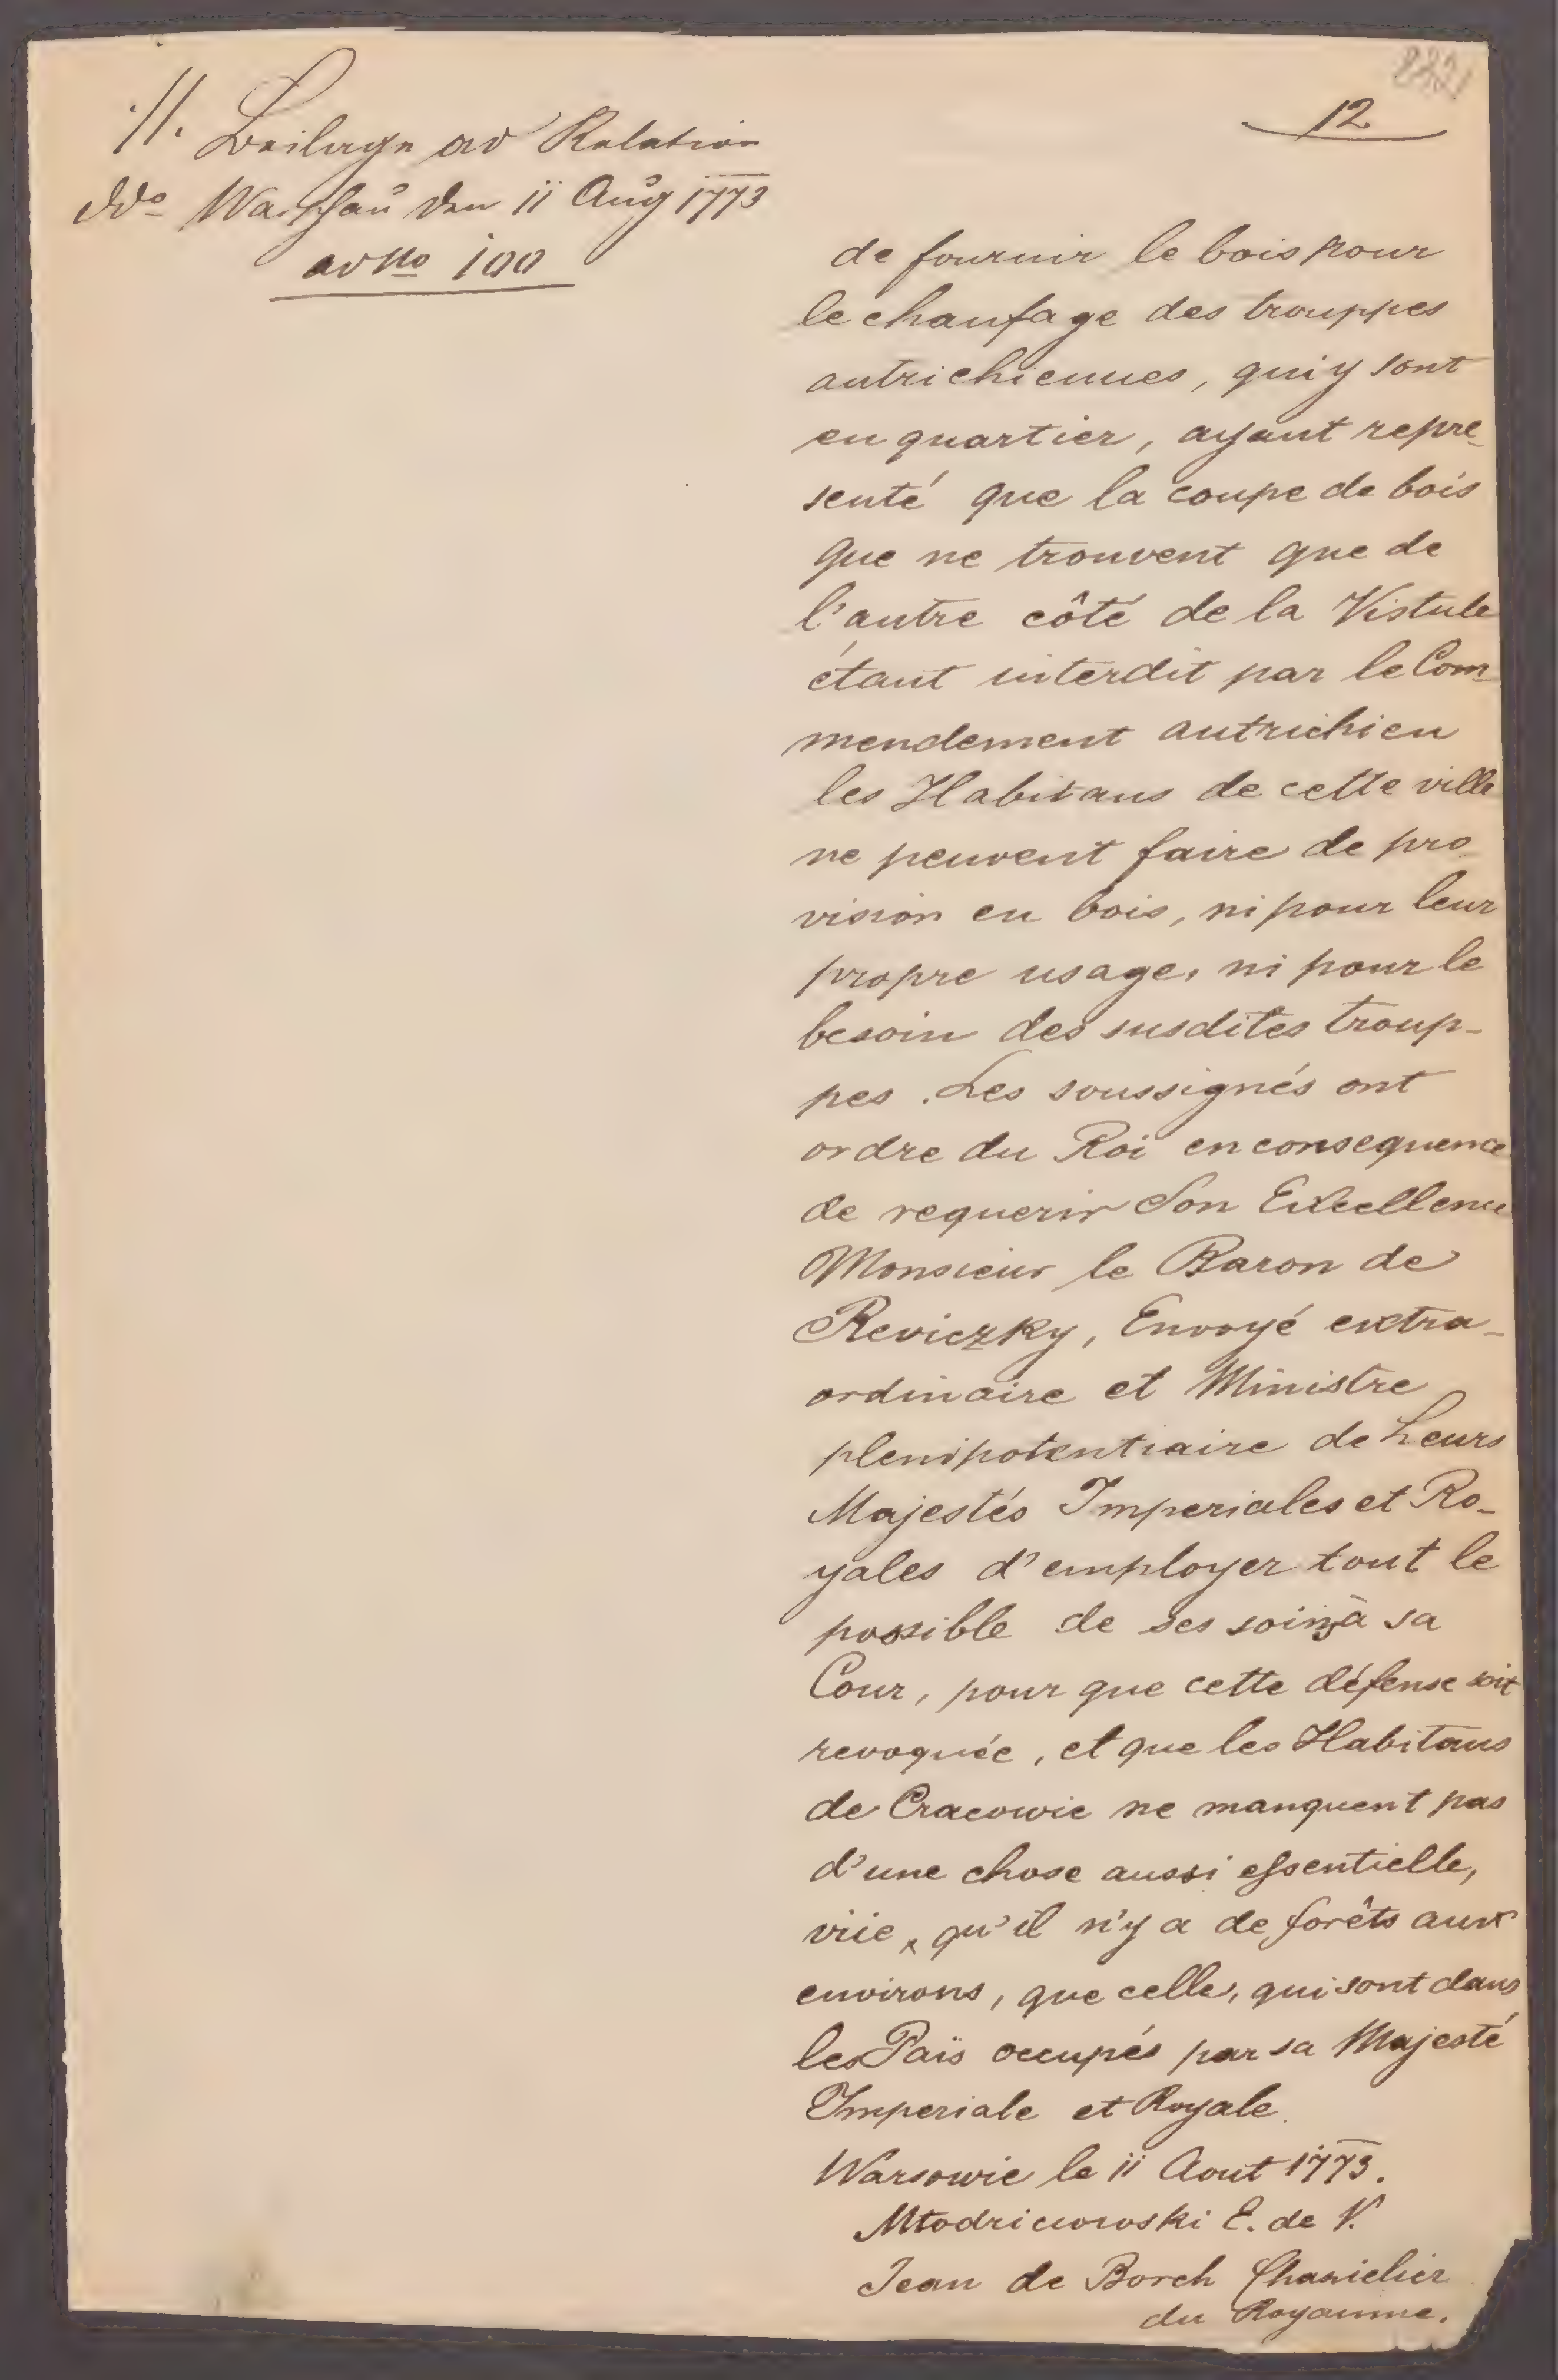 ·/|. Beilage ad Relation
ddo Warschau den 11 Aug 1773
ad No 100
12
de fournir le bois pour
le chaufage des trouppes
autrichiennes, qui y sont
en quartier, ayant repre_
senté que la coupe de bois
que ne trouvent que de
l'autre côté de la Vistule
étant interdit par le Com_
mendement autrichien
les Habitans de cette ville
ne peuvent faire de pro_
vision en bois, ni pour leur
propre usage, ni pour le
besoin des susdites troup-
pes. Les soussignés ont
ordre du Roi en consequence
de requerir Son Excellence
Monsieur le Baron de
Reviczky, Envoyé extra_
ordinaire et Ministre
plenipotentiaire de Leurs
Majestés Imperiales et Ro_
yales d'employer tout le
possible de ses soins à sa
Cour, pour que cette défense soit
revoquée, et que les Habitans
de Cracowie ne manquent pas
d'une chose aussi essentielle,
vûe, qu'il n'y a de forêts aux
environs, que celle, qui sont dans
les Païs occupés par sa Majesté
Imperiale et Royale.
Warsowie le 11 Aout 1773.
Młodziewoski E. de V.
Jean de Borch Chanielier
du Royaume.